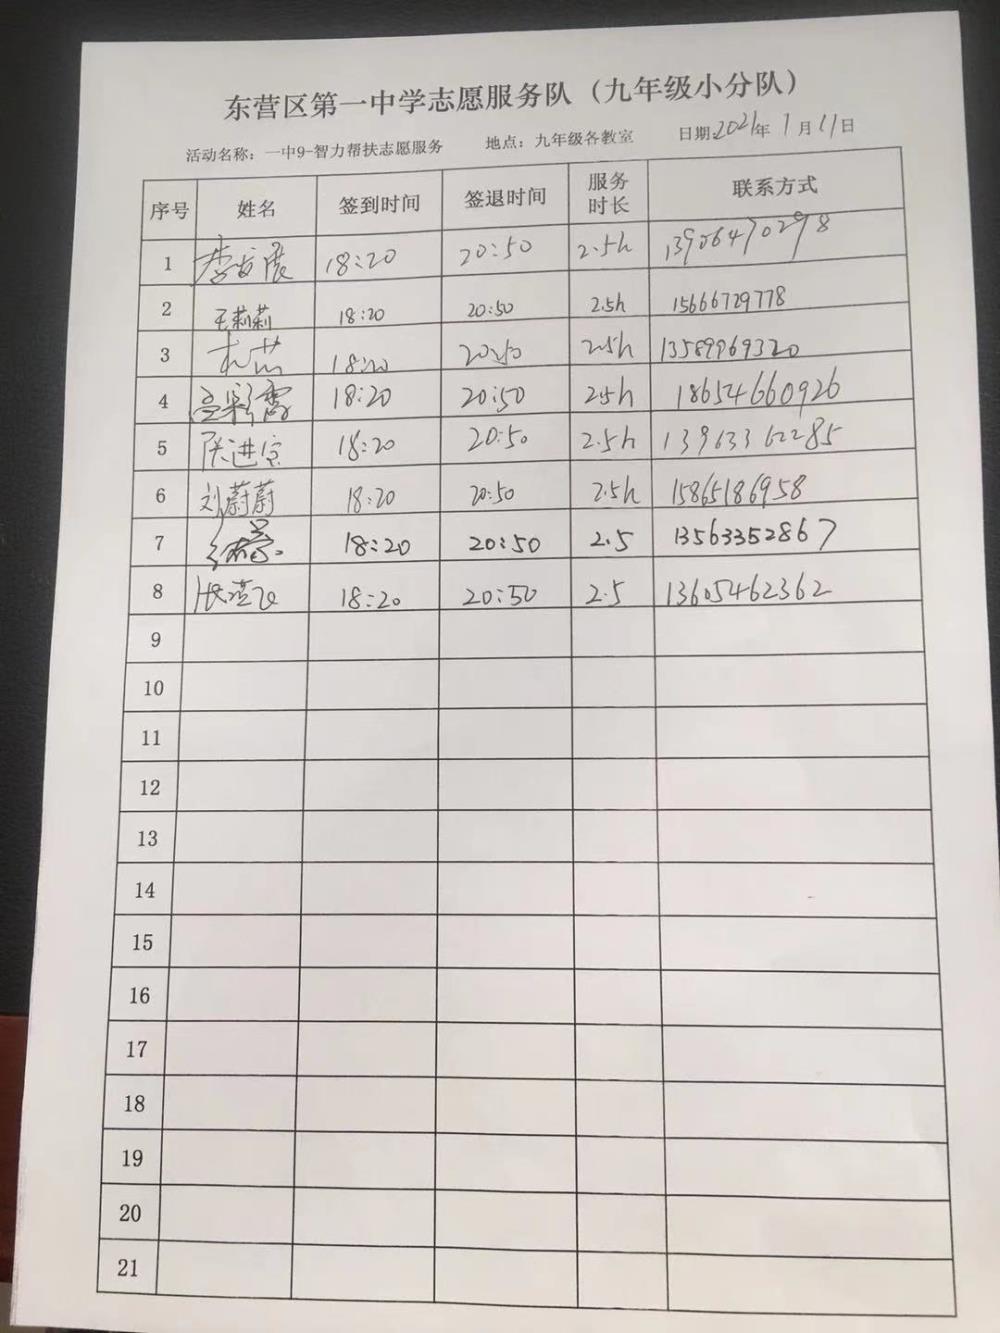 东营区第一中学志愿服务队（九年级小分队）
活动名称：一中9-智力帮扶志愿服务 地点：九年级各教室 日期2021年1月11日
序号 姓名 签到时间 签退时间 服务时长 联系方式
1 李展 18:20 20:50 2.5h 13906470298
2 王莉莉 18:20 20:50 2.5h 15666729778
3 18:20 20:50 2.5h 13589969320
4 18:20 20:50 2.5h 18654660926
5 张进宝 18:20 20:50 2.5h 13963362285
6 刘蔚蔚 18:20 20:50 2.5h 15865186958
7 18:20 20:50 2.5 13563352867
8 18:20 20:50 2.5 13605462362
9
10
11
12
13
14
15
16
17
18
19
20
21